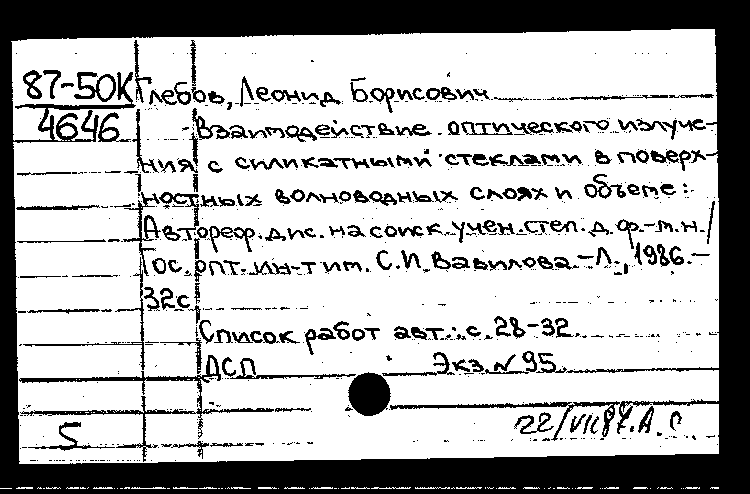 87-50К Глебов, Леонид Борисович
4646 Взаимодействие оптического излуче-
ния с силикатными стеклами в поверх-
ностных волноводных слоях и объеме:
Автореф. дис. на соиск. учен. степ. д. ф.-м. н./
Гос. опт. ин-т им. С. И. Вавилова.-Л., 1986.-
32 с.
Список работ авт.: с. 28-32.
ДСП Экз. № 95.
22/VII 87. А. С.
5